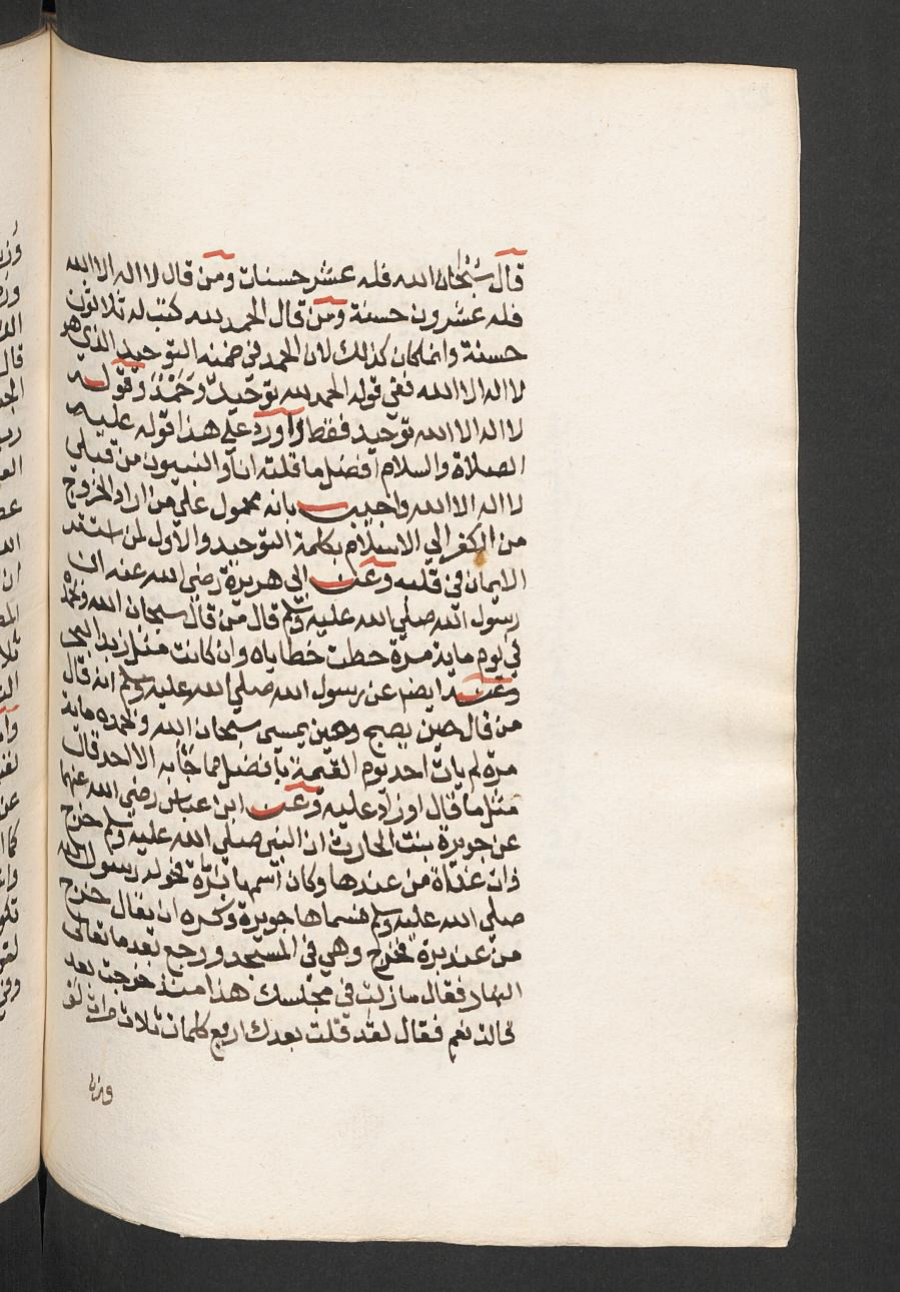 قال سبحان الله فله عشر حسنات ومن قال لا اله الا الله
فله عشرون حسنة ومن قال الحمد لله كتب له ثلاثون
حسنة وانما كان كذلك لان الحمد في ضمنه التوحيد الذي هو
لا اله الا الله ففي قوله الحمد لله توحيد وحمد وقوله
لا اله الا الله توحيد فقط واورد علي هذا قوله عليه
الصلاة والسلام افضل ما قلته انا والنبيون من قبلي
لا اله الا الله واجيب بانه محمول علي من اراد الخروج
من الكفر الي الاسلام بكلمة التوحيد والاول لمن استقر
الايمان في قلبه وعن ابي هريرة رضي الله عنه ان
رسول الله صلي الله عليه وسلم قال من قال سبحان الله وبحمده
في يوم ماية مرة حطت خطاياه وان كانت مثل زبد البحر
وعنه ايضا عن رسول الله صلي الله عليه وسلم انه قال
من قال حين يصبح وحين يمسي سبحان الله وبحمده ماية
مرة لم يات احد يوم القيمة بافضل مما جا به الا احد قال
مثل ما قال او زاد عليه وعن ابن عباس رضي الله عنهما
عن جويرة بنت الحارث ان النبي صلي الله عليه وسلم خرج
ذات غداة من عندها وكان اسمها برة فحوله رسول الله
صلي الله عليه وسلم فسماها جويرة وكره ان يقال خرج
من عند برة فخرج وهي في المسجد ورجع بعد ما تعالى
النهار فقال ما زلت في مجلسك هذا منذ خرجت بعد
قالت نعم فقال لقد قلت بعدك اربع كلمات ثلاث مرات لو
وزنت